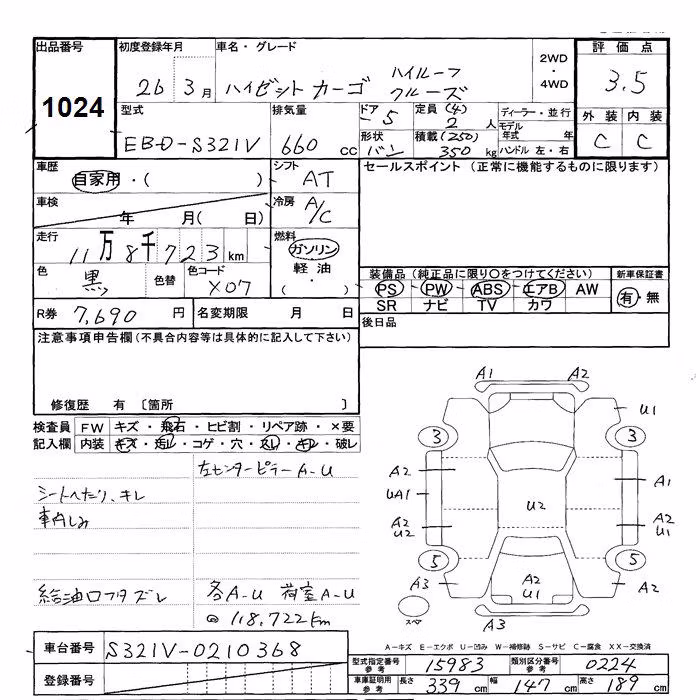 出品番号 初度登録年月 車名・グレード 評価点
1024
26 3月 ハイゼット カーゴ ハイルーフ クルーズ
2WD・4WD
3.5
型式 排気量 ドア 5 定員(4) 2人 ディーラー・並行 外装 内装
モデル年式 年
EBD-S321V 660cc 形状 バン 積載(250) 350kg ハンドル 左・右 C C
車歴 シフト セールスポイント(正常に機能するものに限ります)
自家用・( ) AT
車検 冷房
年 月( 日) A/C
走行 燃料
11万8千723km ガソリン
色 色替 色コード 軽油
黒 X07 ・( )
装備品(純正品に限り○をつけてください) 新車保証書
PS PW ABS エアB AW 有・無
SR ナビ TV カワ
R券 7,690円 名変期限 月 日 後日品
注意事項申告欄(不具合内容等は具体的に記入して下さい)
修復歴 有 〔箇所 〕
検査員 FW キズ・飛石・ヒビ割・リペア跡・×要
記入欄 内装 キズ・汚レ・コゲ・穴・スレ・キレ・破レ
左センターピラーA-U
シートへたり、キレ
車内しみ
給油口フタズレ 各A-U 荷室A-U
@118,722km
A1 A2
U1
3 3
A2 A1
UA1 U2
A2 U2 A2 U1
5 5
A3 A2 U1 A2
スペア A3
A-キズ E-エクボ U-凹み W-補修跡 S-サビ C-腐食 XX-交換済
車台番号 S321V-0210368
型式指定番号 参考 15983 類別区分番号 参考 0224
登録番号 車庫証明用 参考 長さ 339cm 幅 147cm 高さ 189cm